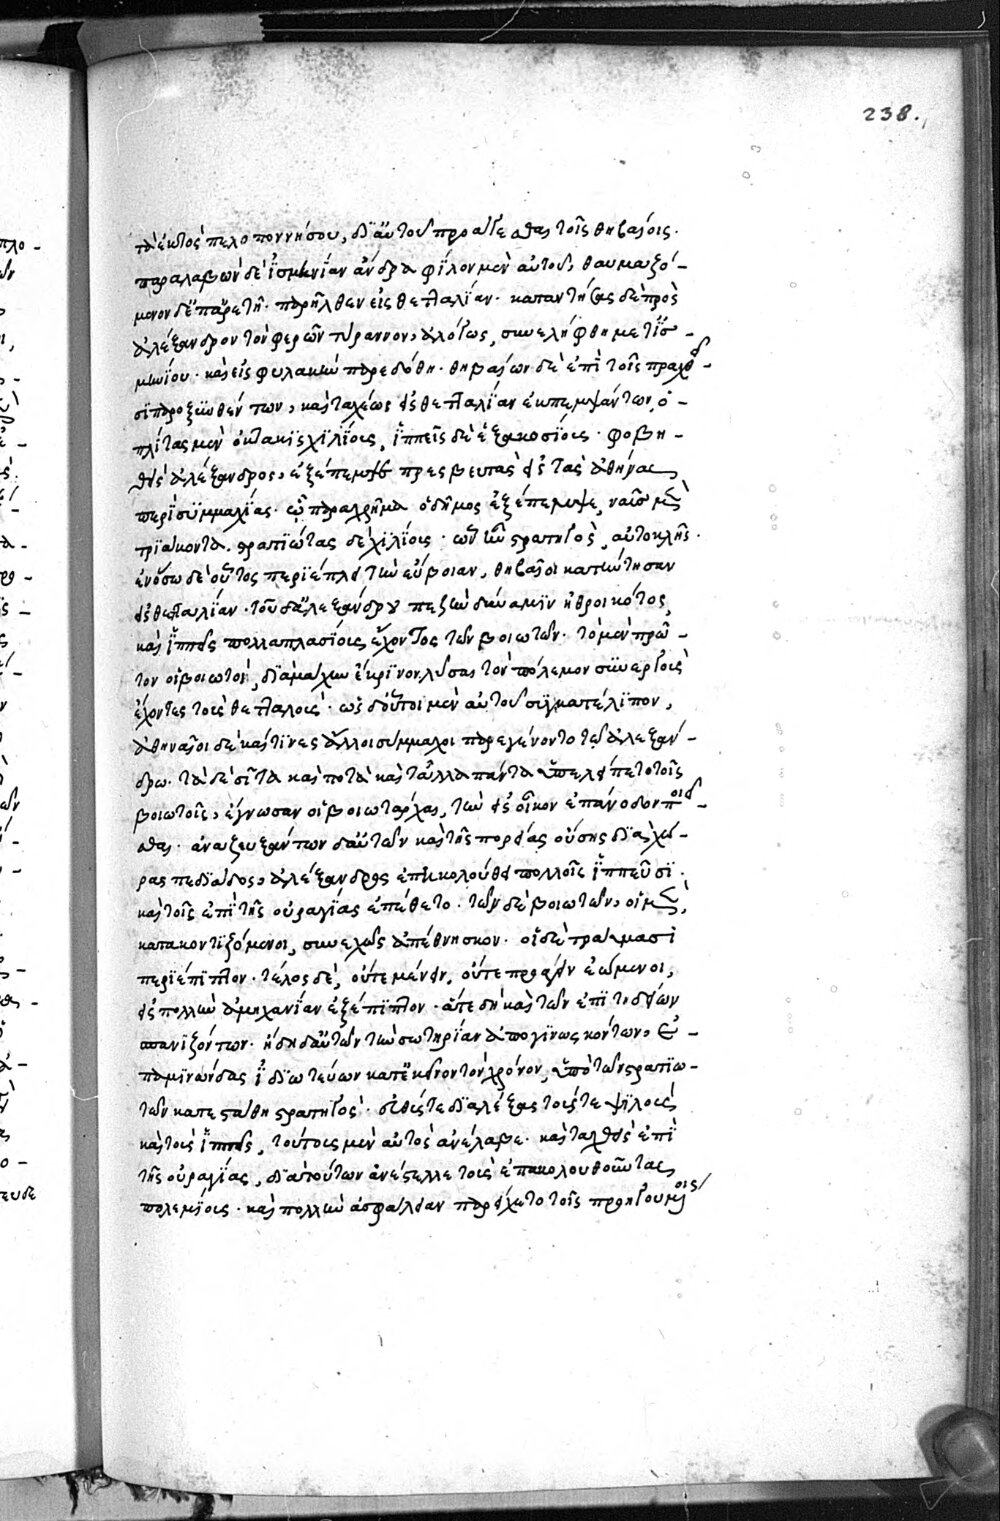 238.
τὰ ἐκτὸς πελοποννήσου, δι' αὐτοῦ προσθέσθαι τοῖς θηβαίοις.
παραλαβὼν δὲ ἰσμηνίαν ἄνδρα φίλον μὲν αὐτοῦ, θαυμαζό-
μενον δ' ἐπ' ἀρετῇ. παρῆλθεν εἰς θετταλίαν. καταντήσας δὲ πρὸς
ἀλέξανδρον τὸν φερῶν τύραννον, ἀλόγως, συνελήφθη μετ' ἰσ-
μηνίου. καὶ εἰς φυλακὴν παρεδόθη. θηβαίων δὲ ἐπὶ τοῖς πραχθεῖ-
σι παροξυνθέντων, καὶ ταχέως εἰς θετταλίαν ἐκπεμψάντων, ὁ-
πλίτας μὲν ὀκτακισχιλίους, ἱππεῖς δὲ ἑξακοσίους. φοβη-
θεὶς ἀλέξανδρος, ἐξέπεμψε πρεσβευτὰς εἰς τὰς ἀθήνας
περὶ συμμαχίας. ᾧ παραχρῆμα ὁ δῆμος ἐξέπεμψε, ναῦς μὲν
τριάκοντα. στρατιώτας δὲ χιλίους. ὧν ἦν στρατηγὸς, αὐτοκλῆς.
ἐν ὅσῳ δὲ οὗτος περιέπλει τὴν εὔβοιαν, θηβαῖοι κατήντησαν
εἰς θετταλίαν. τοῦ δ' ἀλεξάνδρου πεζὴν δύναμιν ἠθροικότος,
καὶ ἱππεῖς πολλαπλασίους ἔχοντος τῶν βοιωτῶν. τὸ μὲν πρῶ-
τον οἱ βοιωτοὶ, διὰ μάχης ἔκρινον λῦσαι τὸν πόλεμον συνεργοὺς
ἔχοντες τοὺς θετταλούς. ὡς δ' οὗτοι μὲν αὐτοὺς ἐγκατέλιπον,
ἀθηναῖοι δὲ καί τινες ἄλλοι σύμμαχοι παρεγένοντο τῷ ἀλεξάν-
δρῳ. τὰ δὲ σῖτα καὶ ποτὰ καὶ τἆλλα πάντα ἐπέλειπε τοῖς
βοιωτοῖς, ἔγνωσαν οἱ βοιωτάρχαι, τὴν εἰς οἶκον ἐπάνοδον ποιεῖ-
σθαι. ἀναζευξάντων δ' αὐτῶν καὶ τῆς πορείας οὔσης διὰ χώ-
ρας πεδιάδος, ἀλέξανδρος ἐπηκολούθει πολλοῖς ἱππεῦσι.
καὶ τοῖς ἐπὶ τῆς οὐραγίας ἐπέθετο. τῶν δὲ βοιωτῶν, οἱ μὲν,
κατακοντιζόμενοι, συνεχῶς ἀπέθνησκον. οἱ δὲ τραύμασι
περιέπιπτον. τέλος δὲ, οὔτε μένειν, οὔτε προάγειν ἐώμενοι,
εἰς πολλὴν ἀμηχανίαν ἐξέπιπτον. ἅτε δὴ καὶ τῶν ἐπιτηδείων
σπανιζόντων. ἤδη δ' αὐτῶν τὴν σωτηρίαν ἀπογινωσκόντων, ἐ-
παμινώνδας ἰδιωτεύων κατ' ἐκεῖνον τὸν χρόνον, ὑπὸ τῶν στρατιω-
τῶν κατεστάθη στρατηγός. εὐθὺς τε διαλέξας τούς τε ψιλοὺς
καὶ τοὺς ἱππεῖς, τούτους μὲν αὐτὸς ἀνέλαβε. καὶ ταχθεὶς ἐπὶ
τῆς οὐραγίας, διὰ τούτων ἀνέστελλε τοὺς ἐπακολουθοῦντας
πολεμίους. καὶ πολλὴν ἀσφάλειαν παρείχετο τοῖς προηγουμένοις